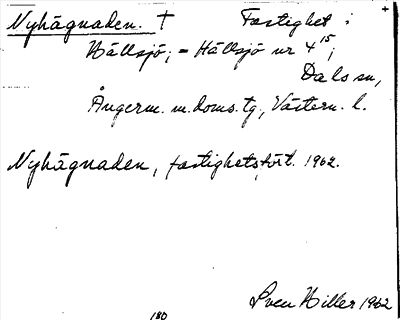 Nyhägnaden. † Fastighet i
Hällsjö; = Hällsjö nr 4¹⁵;
Dals sn,
Ångerm. m. doms. tg, Västern. l.
Nyhägnaden, fastighetsfört. 1962.
Sven Hiller 1962
180